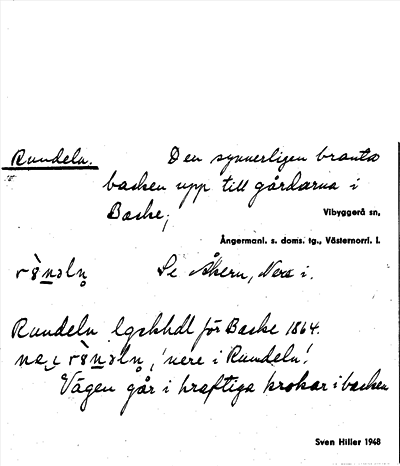 Rundeln. Den synnerligen branta
backen upp till gårdarna i
Backe;
Vibyggerå sn,
Ångermanl. s. doms. tg., Västernorrl. l.
Se Åkern, Nere i.
Rundeln lgskhdl för Backe 1864.
'nere i Rundeln'.
Vägen går i kraftiga krokar i backen
Sven Hiller 1948